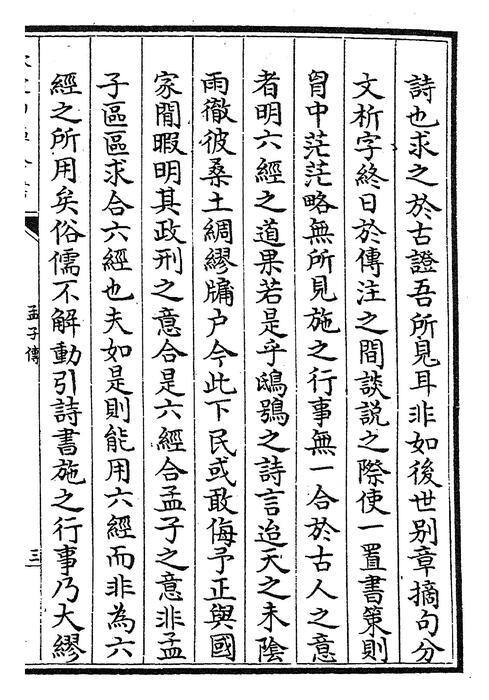 詩也求之於古證吾所見耳非如後世别章摘句分
文析字終日於傳注之間談説之際使一置書策則
胷中茫茫略無所見施之行事無一合於古人之意
者明六經之道果若是乎鴟鴞之詩言迨天之未隂
雨徹彼桑土綢繆牖户今此下民或敢侮予正與國
家閒暇明其政刑之意合是六經合孟子之意非孟
子區區求合六經也夫如是則能用六經而非為六
經之所用矣俗儒不解動引詩書施之行事乃大繆
孟子傳
三